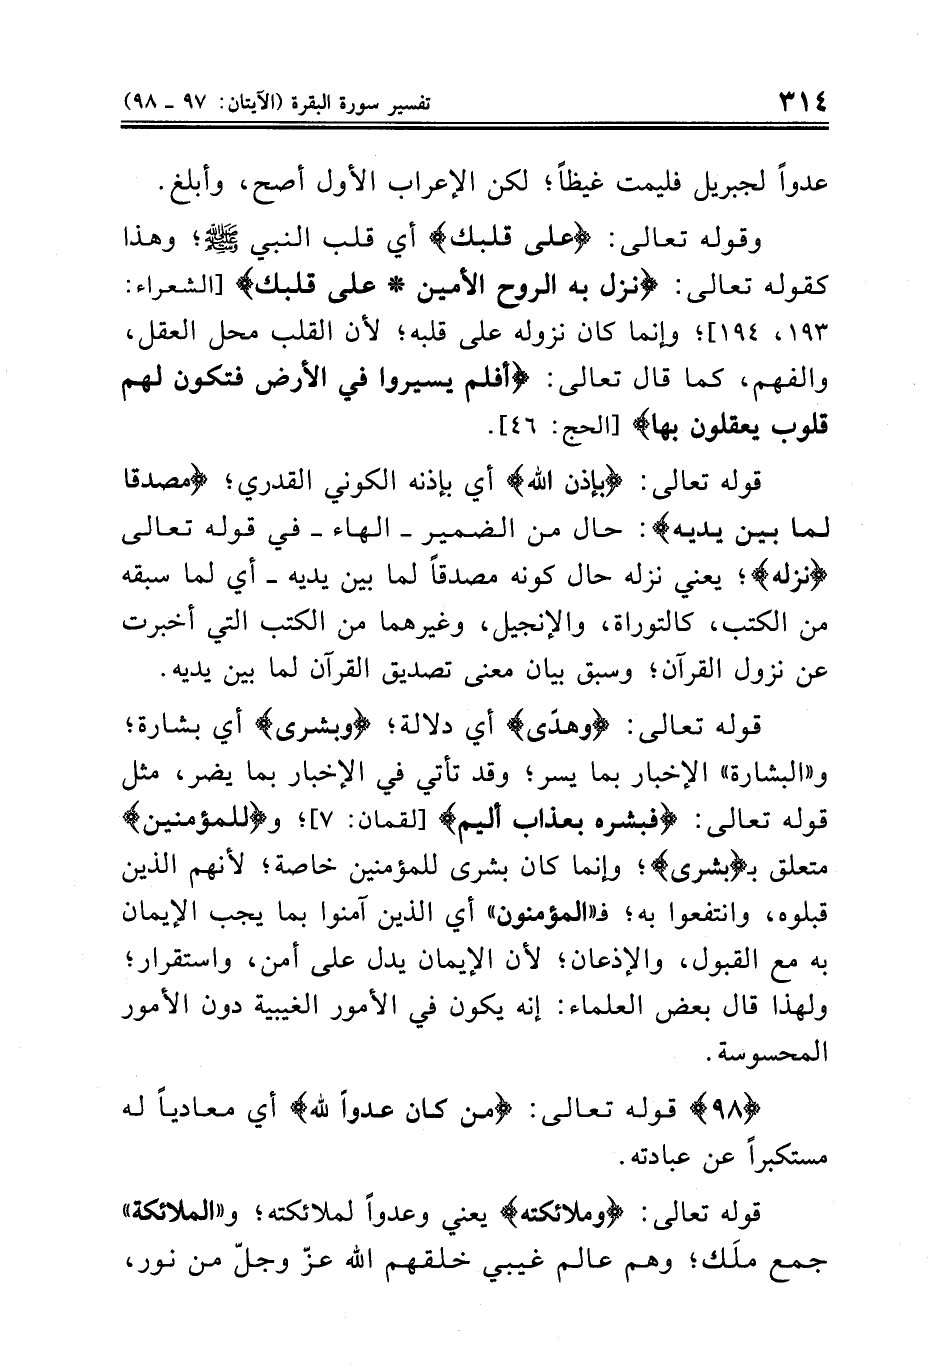 ٣١٤ تفسير سورة البقرة (الآيتان: ٩٧ ـ ٩٨)
عدواً لجبريل فليمت غيظاً؛ لكن الإعراب الأول أصح، وأبلغ.
وقوله تعالى: ﴿على قلبك﴾ أي قلب النبي ﷺ؛ وهذا
كقوله تعالى: ﴿نزل به الروح الأمين * على قلبك﴾ [الشعراء:
١٩٣، ١٩٤]؛ وإنما كان نزوله على قلبه؛ لأن القلب محل العقل،
والفهم، كما قال تعالى: ﴿أفلم يسيروا في الأرض فتكون لهم
قلوب يعقلون بها﴾ [الحج: ٤٦].
قوله تعالى: ﴿بإذن الله﴾ أي بإذنه الكوني القدري؛ ﴿مصدقا
لما بين يديه﴾: حال من الضمير ـ الهاء ـ في قوله تعالى
﴿نزله﴾؛ يعني نزله حال كونه مصدقاً لما بين يديه ـ أي لما سبقه
من الكتب، كالتوراة، والإنجيل، وغيرهما من الكتب التي أخبرت
عن نزول القرآن؛ وسبق بيان معنى تصديق القرآن لما بين يديه.
قوله تعالى: ﴿وهدًى﴾ أي دلالة؛ ﴿وبشرى﴾ أي بشارة؛
و«البشارة» الإخبار بما يسر؛ وقد تأتي في الإخبار بما يضر، مثل
قوله تعالى: ﴿فبشره بعذاب أليم﴾ [لقمان: ٧]؛ و﴿للمؤمنين﴾
متعلق بـ﴿بشرى﴾؛ وإنما كان بشرى للمؤمنين خاصة؛ لأنهم الذين
قبلوه، وانتفعوا به؛ فـ«المؤمنون» أي الذين آمنوا بما يجب الإيمان
به مع القبول، والإذعان؛ لأن الإيمان يدل على أمن، واستقرار؛
ولهذا قال بعض العلماء: إنه يكون في الأمور الغيبية دون الأمور
المحسوسة.
﴿٩٨﴾ قوله تعالى: ﴿من كان عدواً لله﴾ أي معادياً له
مستكبراً عن عبادته.
قوله تعالى: ﴿وملائكته﴾ يعني وعدواً لملائكته؛ و«الملائكة»
جمع ملَك؛ وهم عالم غيبي خلقهم الله عزّ وجلّ من نور،